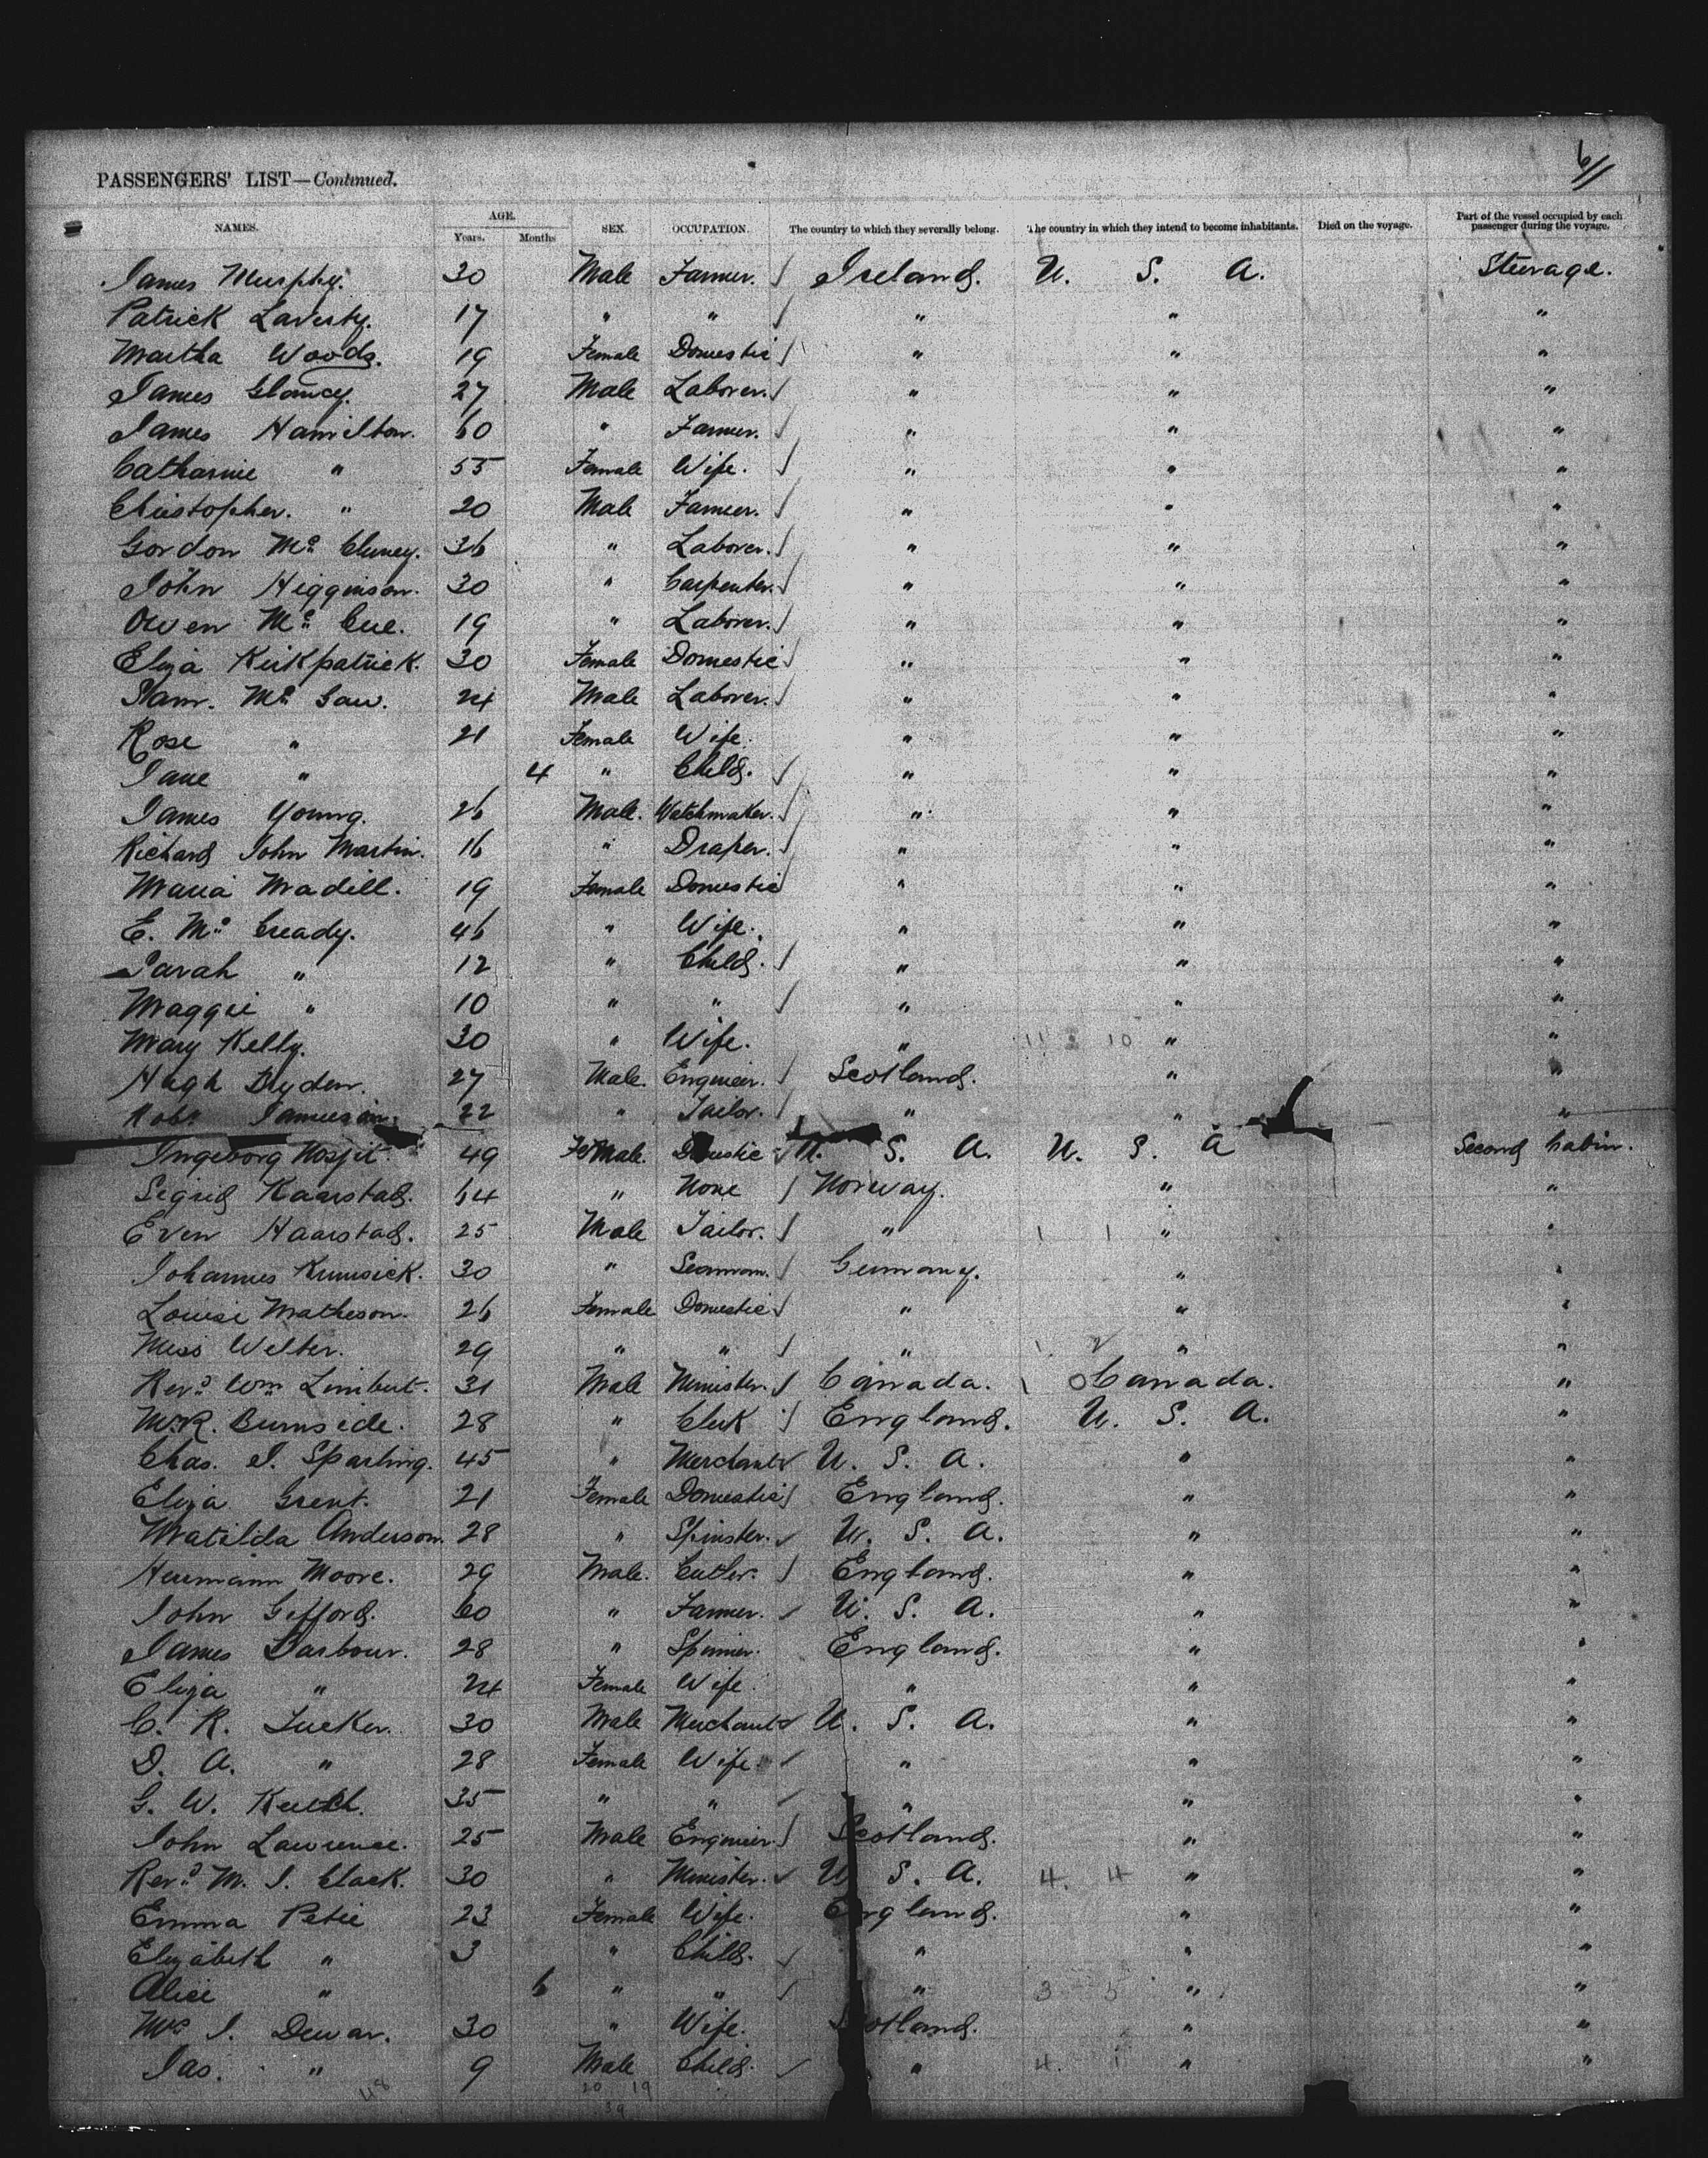 6/11
PASSENGERS' LIST—Continued.
NAMES. AGE. Years. Months SEX. OCCUPATION. The country to which they severally belong. The country in which they intend to become inhabitants. Died on the voyage. Part of the vessel occupied by each passenger during the voyage.
James Murphy. 30 Male Farmer. Ireland. U. S. A. Steerage.
Patrick Laverty. 17 " " " " "
Martha Woods. 19 Female Domestic " " "
James Glancy. 27 Male Laborer. " " "
James Hamilton. 60 " Farmer. " " "
Catharine " 55 Female Wife. " " "
Christopher. " 20 Male Farmer. " " "
Gordon Mc Cluney. 36 " Laborer. " " "
John Higginson. 30 " Carpenter. " " "
Owen Mc Cue. 19 " Laborer. " " "
Eliza Kirkpatrick. 30 Female Domestic " " "
Sam. Mc Gaw. 24 Male Laborer. " " "
Rose " 21 Female Wife. " " "
Jane " 4 " Child. " " "
James Young. 26 Male. Watchmaker. " " "
Richard John Martin. 16 " Draper. " " "
Maria Madill. 19 Female Domestic " " "
E. Mc Cready. 46 " Wife. " " "
Sarah " 12 " Child. " " "
Maggie " 10 " " " " "
Mary Kelly. 30 " Wife. " 11 10 " "
Hugh Dryden. 27 Male. Engineer. Scotland. " "
Robt Jamieson. 22 " Tailor. " " "
Ingeborg 49 Female. Domestic U. S. A. U. S. A Second Cabin.
Sigrid Kaarstad. 64 " None Norway. " "
Even Haarstad. 25 Male Tailor. " 1 1 " "
Johannes 30 " Seaman. Germany. " "
Louise Matheson. 26 Female Domestic " " "
Miss Welter. 29 " " " 1 2 " "
Revd Wm Limbert. 31 Male Minister. Canada. 1 0 Canada. "
M. R. Burnside. 28 " Clerk England. U. S. A. "
Chas. J. Sparling. 45 " Merchant U. S. A. " "
Eliza Grent. 21 Female Domestic England. " "
Matilda Anderson. 28 " Spinster. U. S. A. " "
Hermann Moore. 29 Male. Cutler. England. " "
John Gifford. 60 " Farmer. U. S. A. " "
James Barbour. 28 " Spinner. England. " "
Eliza " 24 Female Wife. " " "
C. R. Tucker. 30 Male Merchant U. S. A. " "
D. A. " 28 Female Wife. " " "
G. W. Keitch. 35 " " " " "
John Lawrence. 25 Male Engineer. Scotland. " "
Revd M. J. Clack. 30 " Minister. U S. A. 4. 4 " "
Emma Petie 23 Female Wife. England. " "
Elizabeth " 3 " Child. " " "
Alice " 6 " " " 3 3 " "
Mrs J. Dewar. 30 " Wife. Scotland. " "
Jas. " 9 Male Child. " 4. 1 " "
48 20 19
39